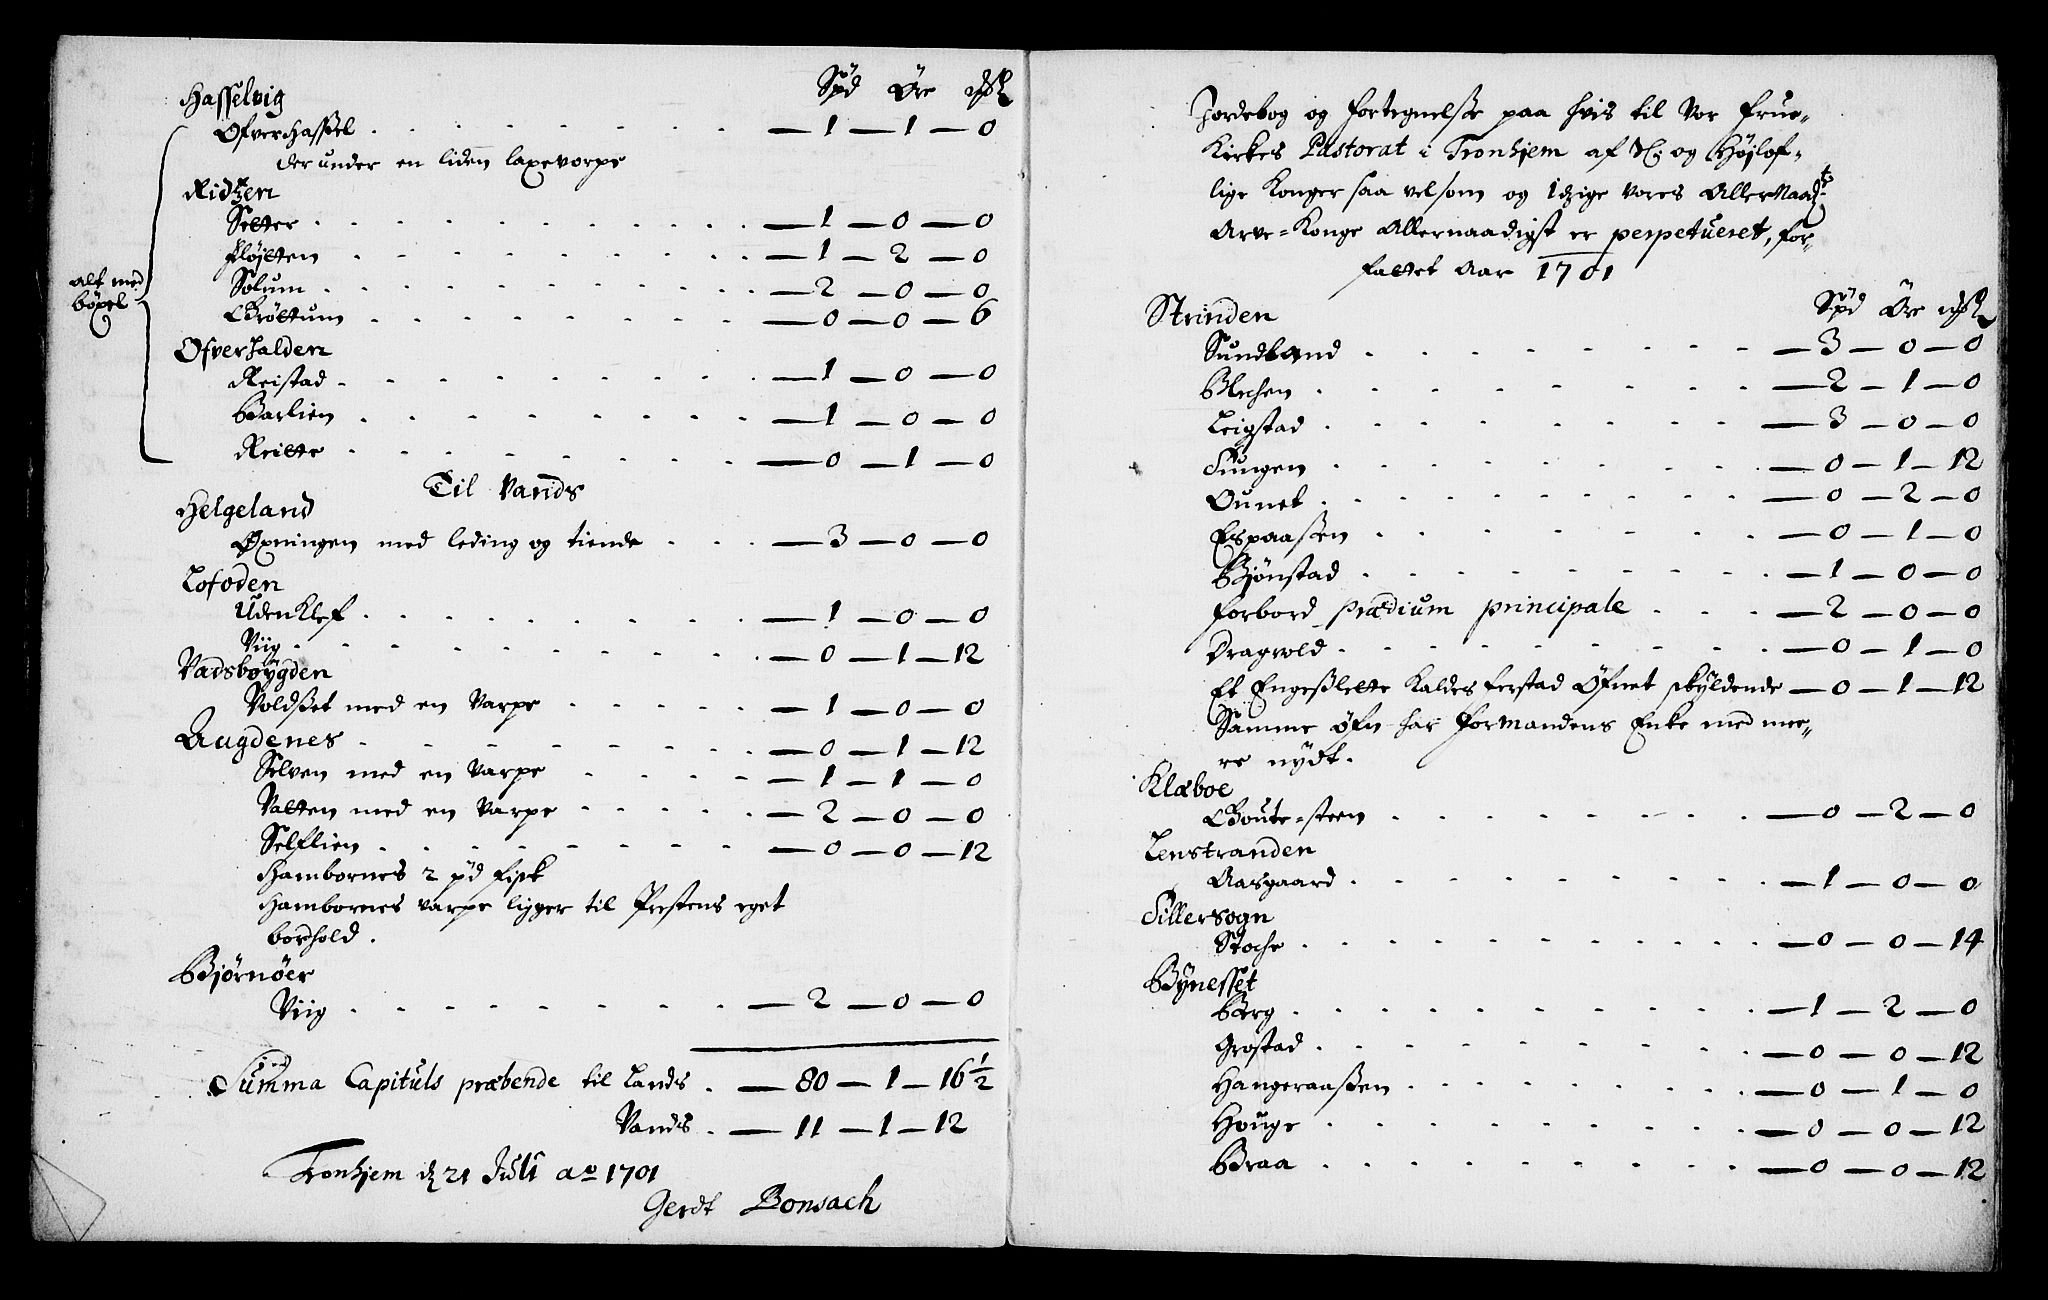 Spd Öre
Hasselvig
Ofverhassel . . . . . . . . — 1 — 1 — 0
der under en liden laxevorpe
Ridtzen
Setter . . . . . . . . — 1 — 0 — 0
Fløjtten . . . . . . . . — 1 — 2 — 0
Solum . . . . . . . . — 2 — 0 — 0
Grøttum . . . . . . . . — 0 — 0 — 6
alt med
böxel
Ofverhalden
Reistad . . . . . . . . — 1 — 0 — 0
Barlien . . . . . . . . — 1 — 0 — 0
Reitte . . . . . . . . — 0 — 1 — 0
Til Vands
Helgeland
Øxningen med leding og tiende . . . — 3 — 0 — 0
Lofoden
Udenklef . . . . . . . . — 1 — 0 — 0
Viig . . . . . . . . — 0 — 1 — 12
Vadsbøygden
Voldset med en varpe . . . . . — 1 — 0 — 0
Augdenes . . . . . . . . — 0 — 1 — 12
Selven med en varpe . . . . — 1 — 1 — 0
Vatten med en varpe . . . . — 2 — 0 — 0
Selflien . . . . . . . . — 0 — 0 — 12
Hambornes 2 pd fisk
Hambornes varpe ligger til Prestens eget
bordhold .
Bjørnöer
Viig . . . . . . . . — 2 — 0 — 0
Summa Capituls præbende til Lands . — 80 — 1 — 16 1/2
Vands . — 11 — 1 — 12
Tronhjem d 21 Juli ao 1701
Gerdt Bonsach
Jordebog og fortegnelse paa hvis til Vor Frue-
Kirkes Pastorat i Tronhjem af og Højlof-
lige Konger saa velsom og itzige vores AllerNaadgts
Arve=Konge Allernaadigst er perpetueret, for-
fattet Aar 1701
Spd Öre
Strinden
Sundland . . . . . . . . — 3 — 0 — 0
Blechen . . . . . . . . — 2 — 1 — 0
Leigstad . . . . . . . . — 3 — 0 — 0
Tungen . . . . . . . . — 0 — 1 — 12
Ounet . . . . . . . . — 0 — 2 — 0
Espaasen . . . . . . . . — 0 — 1 — 0
Bjönstad . . . . . . . . — 1 — 0 — 0
Forbord prædium principale . . . — 2 — 0 — 0
Dragvold . . . . . . . . — 0 — 1 — 0
Et Engeslette Kaldes ferstad Öfnet skyldende — 0 — 1 — 12
Samme öfn har formandens Enke med mee-
re nydt.
Klæboe
Goute=steen . . . . . . . . — 0 — 2 — 0
Lenstranden
Aasgaard . . . . . . . . — 1 — 0 — 0
Tillersogn
Stoche . . . . . . . . — 0 — 0 — 14
Bynesset
Berg . . . . . . . . — 1 — 2 — 0
Grostad . . . . . . . . — 0 — 0 — 12
Hangeraasen . . . . . . . . — 0 — 1 — 0
Houge . . . . . . . . — 0 — 0 — 12
Braa . . . . . . . . — 0 — 0 — 12